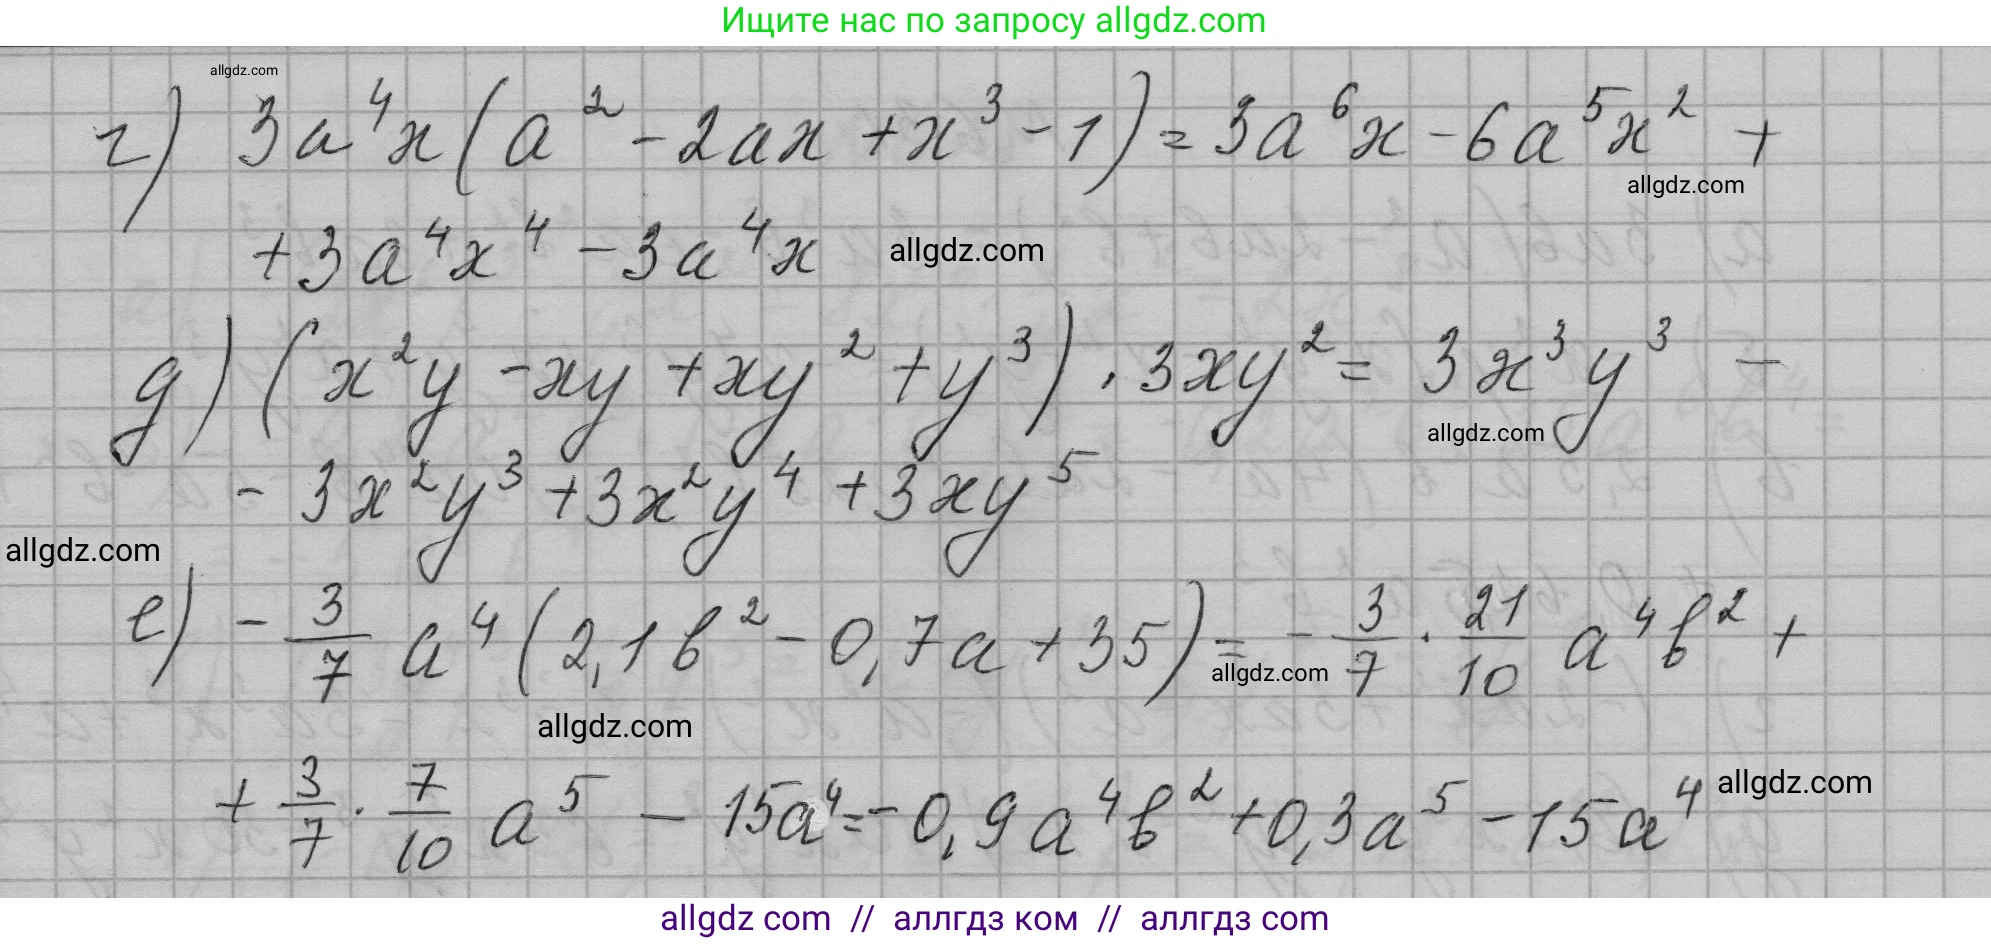 Ищите нас по запросу allgdz.com
allgdz.com
г) 3a⁴x(a² - 2ax + x³ - 1) = 3a⁶x - 6a⁵x² +
allgdz.com
+ 3a⁴x⁴ - 3a⁴x allgdz.com
д) (x²y - xy + xy² + y³) · 3xy² = 3x³y³ -
allgdz.com
- 3x²y³ + 3x²y⁴ + 3xy⁵
allgdz.com
е) - 3/7 a⁴(2,1в² - 0,7a + 35) = - 3/7 · 21/10 a⁴в² +
allgdz.com
allgdz.com
+ 3/7 · 7/10 a⁵ - 15a⁴ = - 0,9a⁴в² + 0,3a⁵ - 15a⁴ allgdz.com
allgdz com // аллгдз ком // аллгдз com